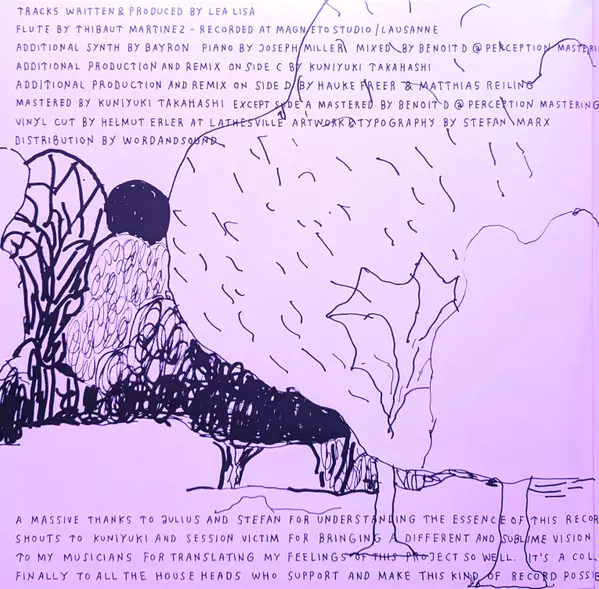 TRACKS WRITTEN & PRODUCED BY LEA LISA
FLUTE BY THIBAUT MARTINEZ - RECORDED AT MAGNETO STUDIO / LAUSANNE
ADDITIONAL SYNTH BY BAYRON PIANO BY JOSEPH MILLER MIXED BY BENOIT D @ PERCEPTION MASTERIN
ADDITIONAL PRODUCTION AND REMIX ON SIDE C BY KUNIYUKI TAKAHASHI
ADDITIONAL PRODUCTION AND REMIX ON SIDE D BY HAUKE FREER & MATTHIAS REILING
MASTERED BY KUNIYUKI TAKAHASHI EXCEPT SIDE A MASTERED BY BENOIT D @ PERCEPTION MASTERING
VINYL CUT BY HELMUT ERLER AT LATHESVILLE ARTWORK & TYPOGRAPHY BY STEFAN MARX
DISTRIBUTION BY WORDANDSOUND
A MASSIVE THANKS TO JULIUS AND STEFAN FOR UNDERSTANDING THE ESSENCE OF THIS RECOR
SHOUTS TO KUNIYUKI AND SESSION VICTIM FOR BRINGING A DIFFERENT AND SUBLIME VISION
TO MY MUSICIANS FOR TRANSLATING MY FEELINGS OF THIS PROJECT SO WELL. IT'S A COL
FINALLY TO ALL THE HOUSE HEADS WHO SUPPORT AND MAKE THIS KIND OF RECORD POSSIB